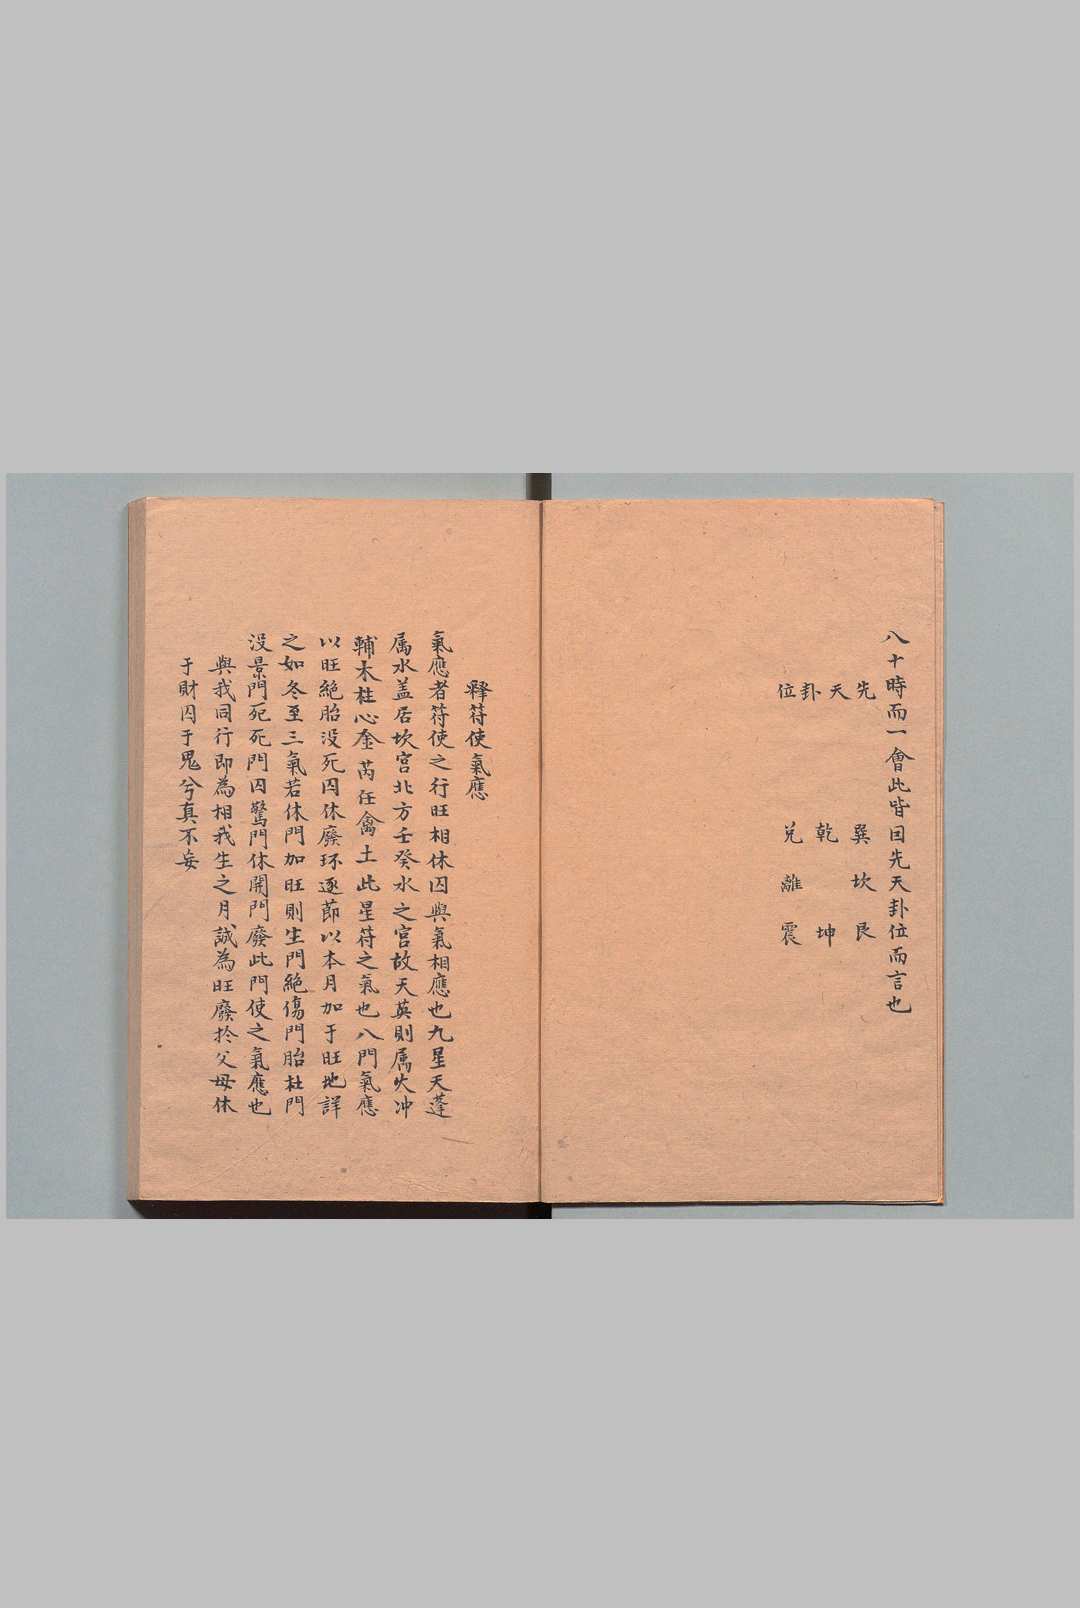 八十時而一會此皆囙先天卦位而言也
先天卦位
巽 坎 艮
乾 坤
兌 離 震
释符使氣應
氣應者符使之行旺相休囚與氣相應也九星天蓬
属水盖居坎宮北方壬癸水之宮故天英則属火冲
輔木柱心金芮任禽土此星符之氣也八門氣應
以旺絕胎没死囚休廢环逐節以本月加于旺地詳
之如冬至三氣若休門加旺則生門絕傷門胎杜門
没景門死死門囚驚門休開門廢此門使之氣應也
與我同行即為相我生之月誠為旺廢於父母休
于財囚于鬼兮真不妄